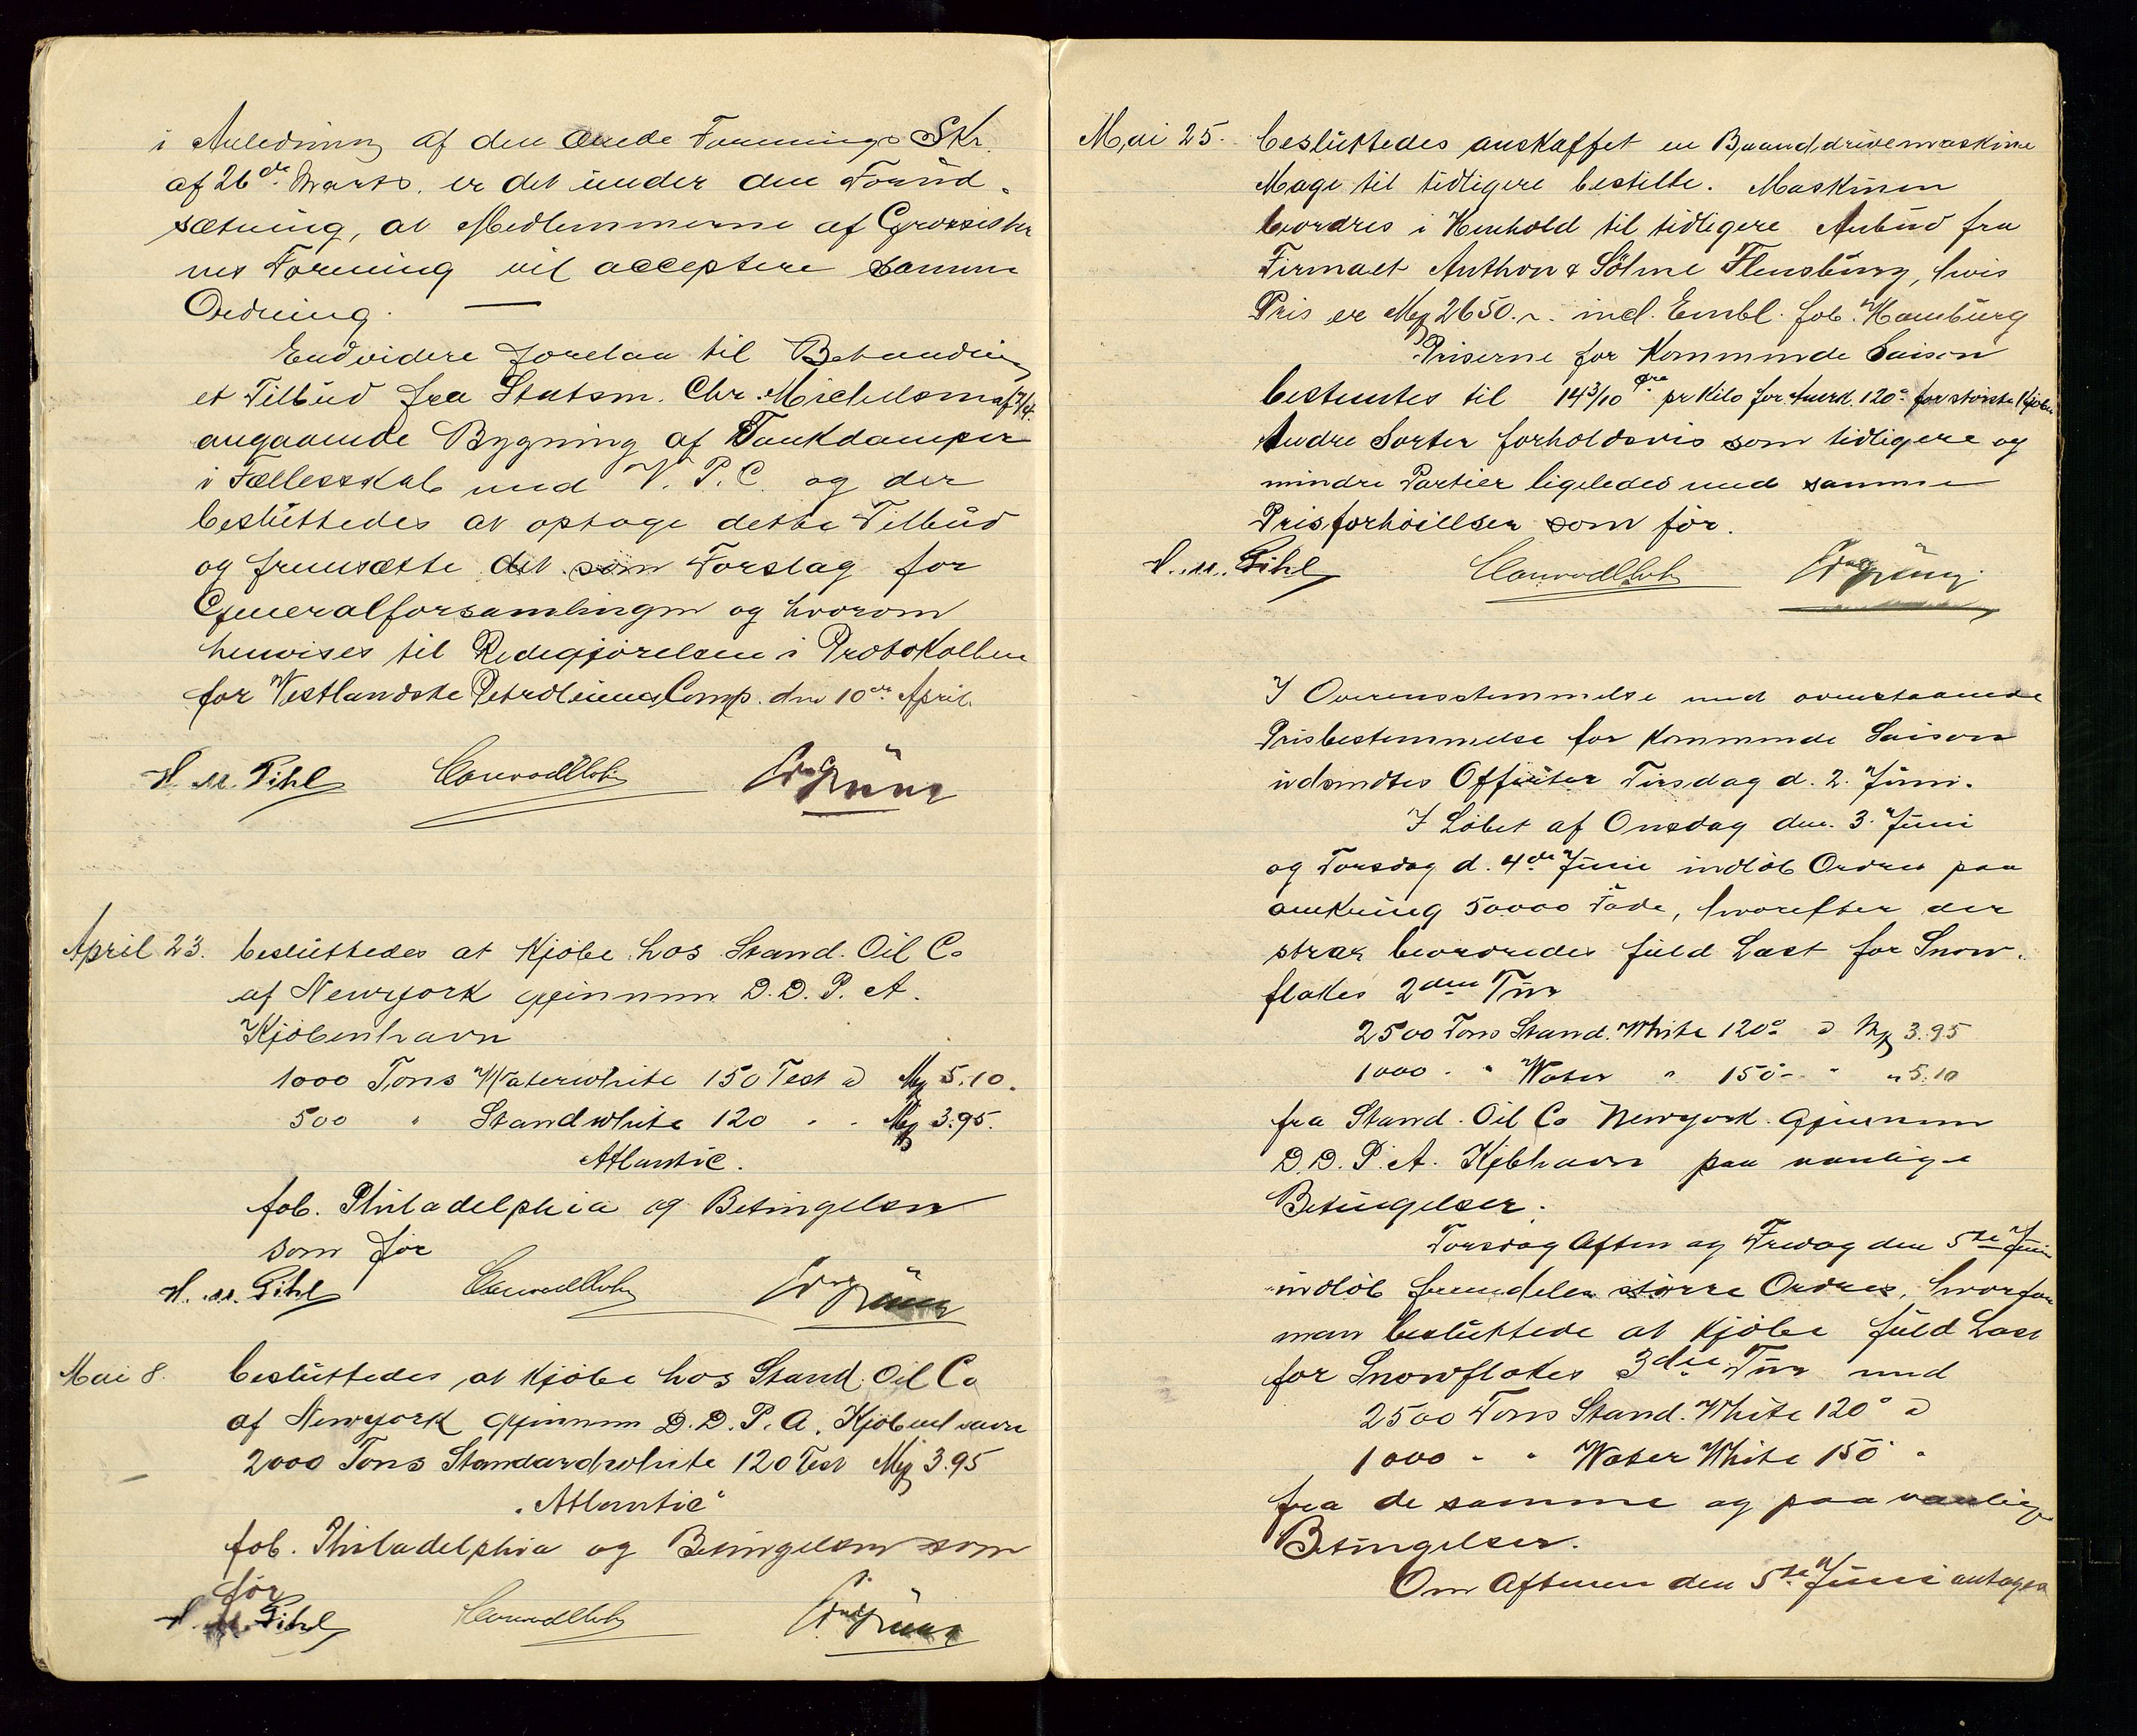 i Anledning af den ærede Forenings Skr.
af 26de Marts, er det under den Forud-
sætning, at Medlemmerne af Grossister
nes Forening vil acceptere samme
Ordning.
Endvidere forelaa til Behandling
et Tilbud fra Statsm. Chr. Michelsen af 7/4.
angaaende Bygning af Tankdamper
i Fællesskab med V. P. C. og der
besluttedes at optage dette Tilbud
og fremsætte det som Forslag for
Generalforsamlingen og hvorom
henvises til Redegjørelsen i Protokollen
for Vestlandske Petroleums Comp. den 10de April.
H. M. Pihl Conrad Mohr
April 23. besluttedes at Kjøbe hos Stand. Oil Co
af Newyork gjennem D. D. P. A.
Kjøbenhavn
1000 Tons Waterwhite 150 Test a Mg 5.10.
500 " Standwhite 120 " " Mg 3.95.
Atlantic.
fob. Philadelphia og Betingelser
som før
H. M. Pihl Conrad Mohr
Mai 8. besluttedes at Kjøbe hos Stand. Oil Co
af Newyork gjennem D. D. P. A. Kjøbenhavn
2000 Tons Standardwhite 120 Test Mg 3.95
"Atlantic"
fob. Philadelphia og Betingelser som
før
H. M. Pihl Conrad Mohr
Mai 25. besluttedes anskaffet en Baanddrivemaskine
Mage til tidligere bestilte. Maskinen
beordres i Henhold til tidligere Anbud fra
Firmaet Anthon & Söhne Flensburg, hvis
Pris er Mg 2650.- incl. Embl. fob. Hamburg
Priserne for Kommende Saison
bestemtes til 14 3/10 øre pr Kilo for Amerk. 120° for største Kjøber
Andre Sorter forholdsvis som tidligere og
mindre Partier ligeledes med samme
Prisforhøielser som før.
H. M. Pihl Conrad Mohr
I Overensstemmelse med ovenstaaende
Prisbestemmelse for Kommende Saison
udsendtes Offerter Tirsdag d. 2. Juni.
I Løbet af Onsdag den 3. Juni
og Torsdag d. 4de Juni indløb Ordres paa
omkring 50000 Fade, hvorefter der
strax beordredes fuld Last for Snow-
flakes 2den Tur
2500 Tons Stand. White 120° a Mg 3.95
1000 " " Water " 150° " " 5.10
fra Stand. Oil Co Newyork gjennem
D. D. P. A. Kjøbhavn paa vanlige
Betingelser.
Torsdag Aften og Fredag den 5te Juni
indløb fremdeles større Ordres, hvorfor
man besluttede at Kjøbe fuld Last
for Snowflakes 3die Tur med
2500 Tons Stand. White 120° a
1000 " " Water White 150° "
fra de samme og paa vanlige
Betingelser.
Om Aftenen den 5te Juni antoges